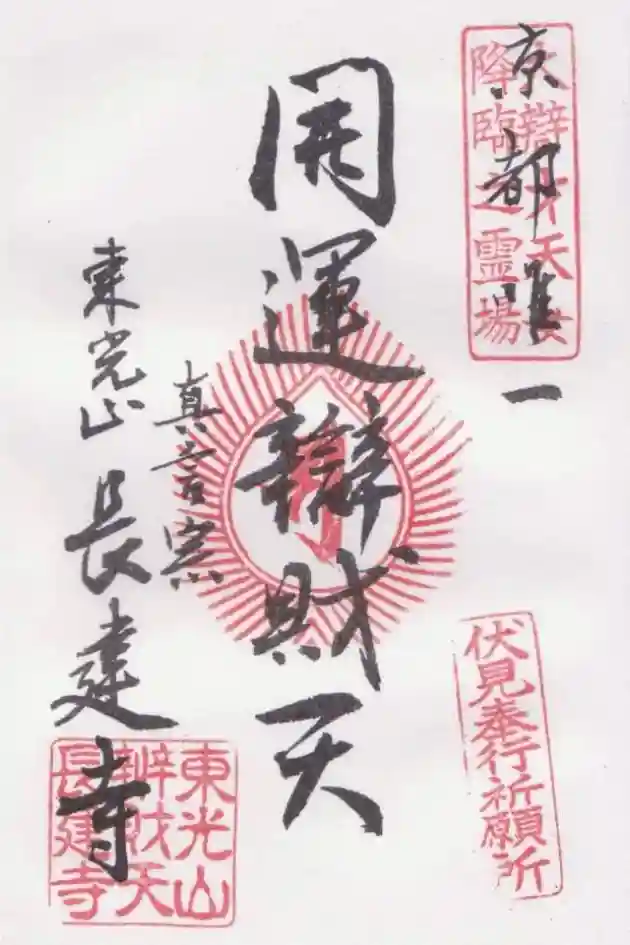 京都唯一
大辨才天女
降臨之霊場
開運辯財天
伏見奉行祈願所
真言宗
東光山 長建寺
東光山
辨財天
長建寺